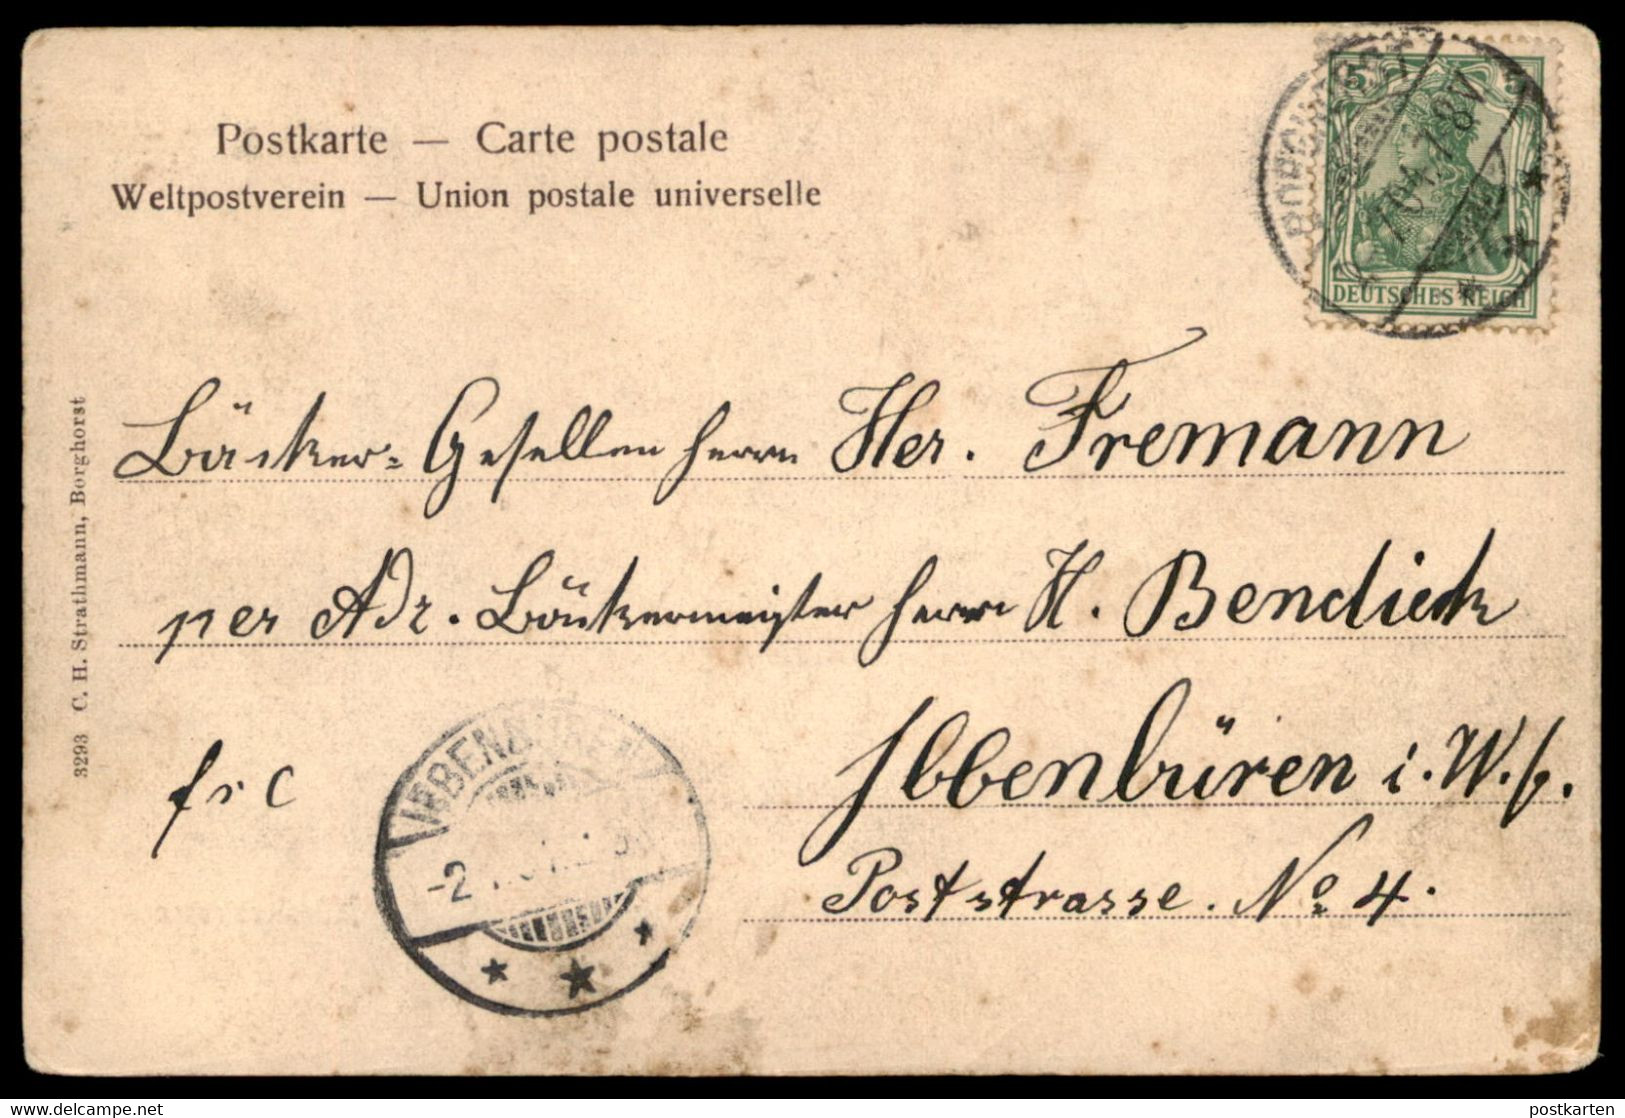 Postkarte — Carte postale
Weltpostverein — Union postale universelle
5 5
DEUTSCHES REICH
BORGHORST
04. 7-8V.
3293 C. H. Strathmann, Borghorst
Bäcker-Gesellen Herrn Her. Fremann
per Adr. Bäckermeister Herrn H. Bendick
Ibbenbüren i. W.f.
Poststrasse. No 4.
IBBENBÜREN
-2
postkarten
www.delcampe.net